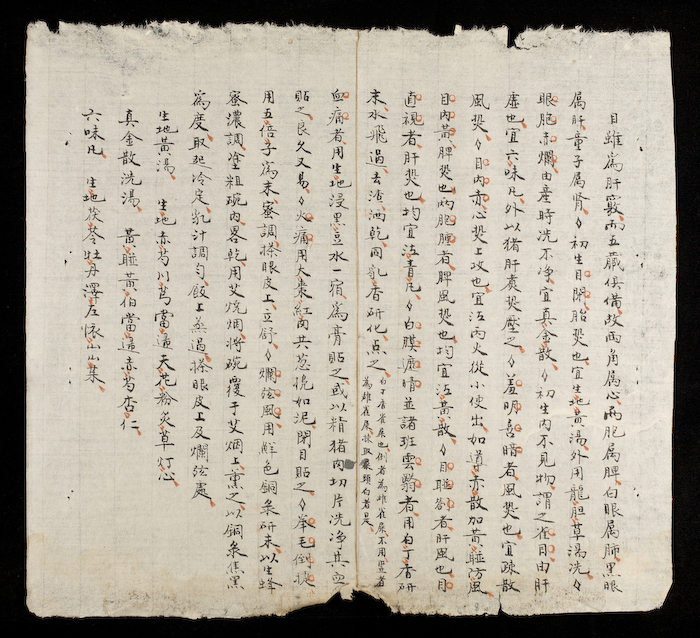 目雖爲肝竅而五臟俱備故兩角屬心兩胞屬脾白眼屬肺黑眼
屬肝童子屬腎〱初生目閉胎熱也宜生地黃湯外用龍胆草湯洗〱
眼胞赤爛由產時洗不净宜真金散〱初生内不見物謂之雀目由肝
虚也宜六味凡外以猪肝煮熟壓之〱羞明喜暗者風熱也宜疎散
風熱〱目内赤心熱上攻也宜江内火從小便出如導赤散加黃䏠防風
目内黃脾熱也兩胞腫者脾風熱也均宜泻黃散〱目䏠劄者肝風也目
直視者肝熱也均宜泻青凡〱白膜遮睛並諸班雲翳者用白丁香研
末水飛過去渣晒乾同乳香研化点之
白丁香雀屎也倒者為雄雀屎不用竪者
為雄雀屎採取最頭白者是
血痛者用生地浸黑豆水一宿為膏貼之或以精猪肉切片洗净其血
貼之良久又易〱火痛用大棗紅肉共葱搗如泥閉目貼之〱拳毛倒捷
用五倍子為末蜜調搽眼皮上立舒〱爛弦風用鮮色銅条研末以生蜂
蜜濃調塗粗碗内畧乾用艾燒烟將碗覆于艾烟上熏之以銅条焦黑
為度取起冷定乳汁調勻飯上蒸過搽眼皮上及爛弦處
生地黃湯 生地赤芍川芎當逼天花粉炙草灯心
真金散洗湯 黃䏠黃伯當逼赤芍杏仁
六味凡 生地茯苓牡丹澤左怀山山茱